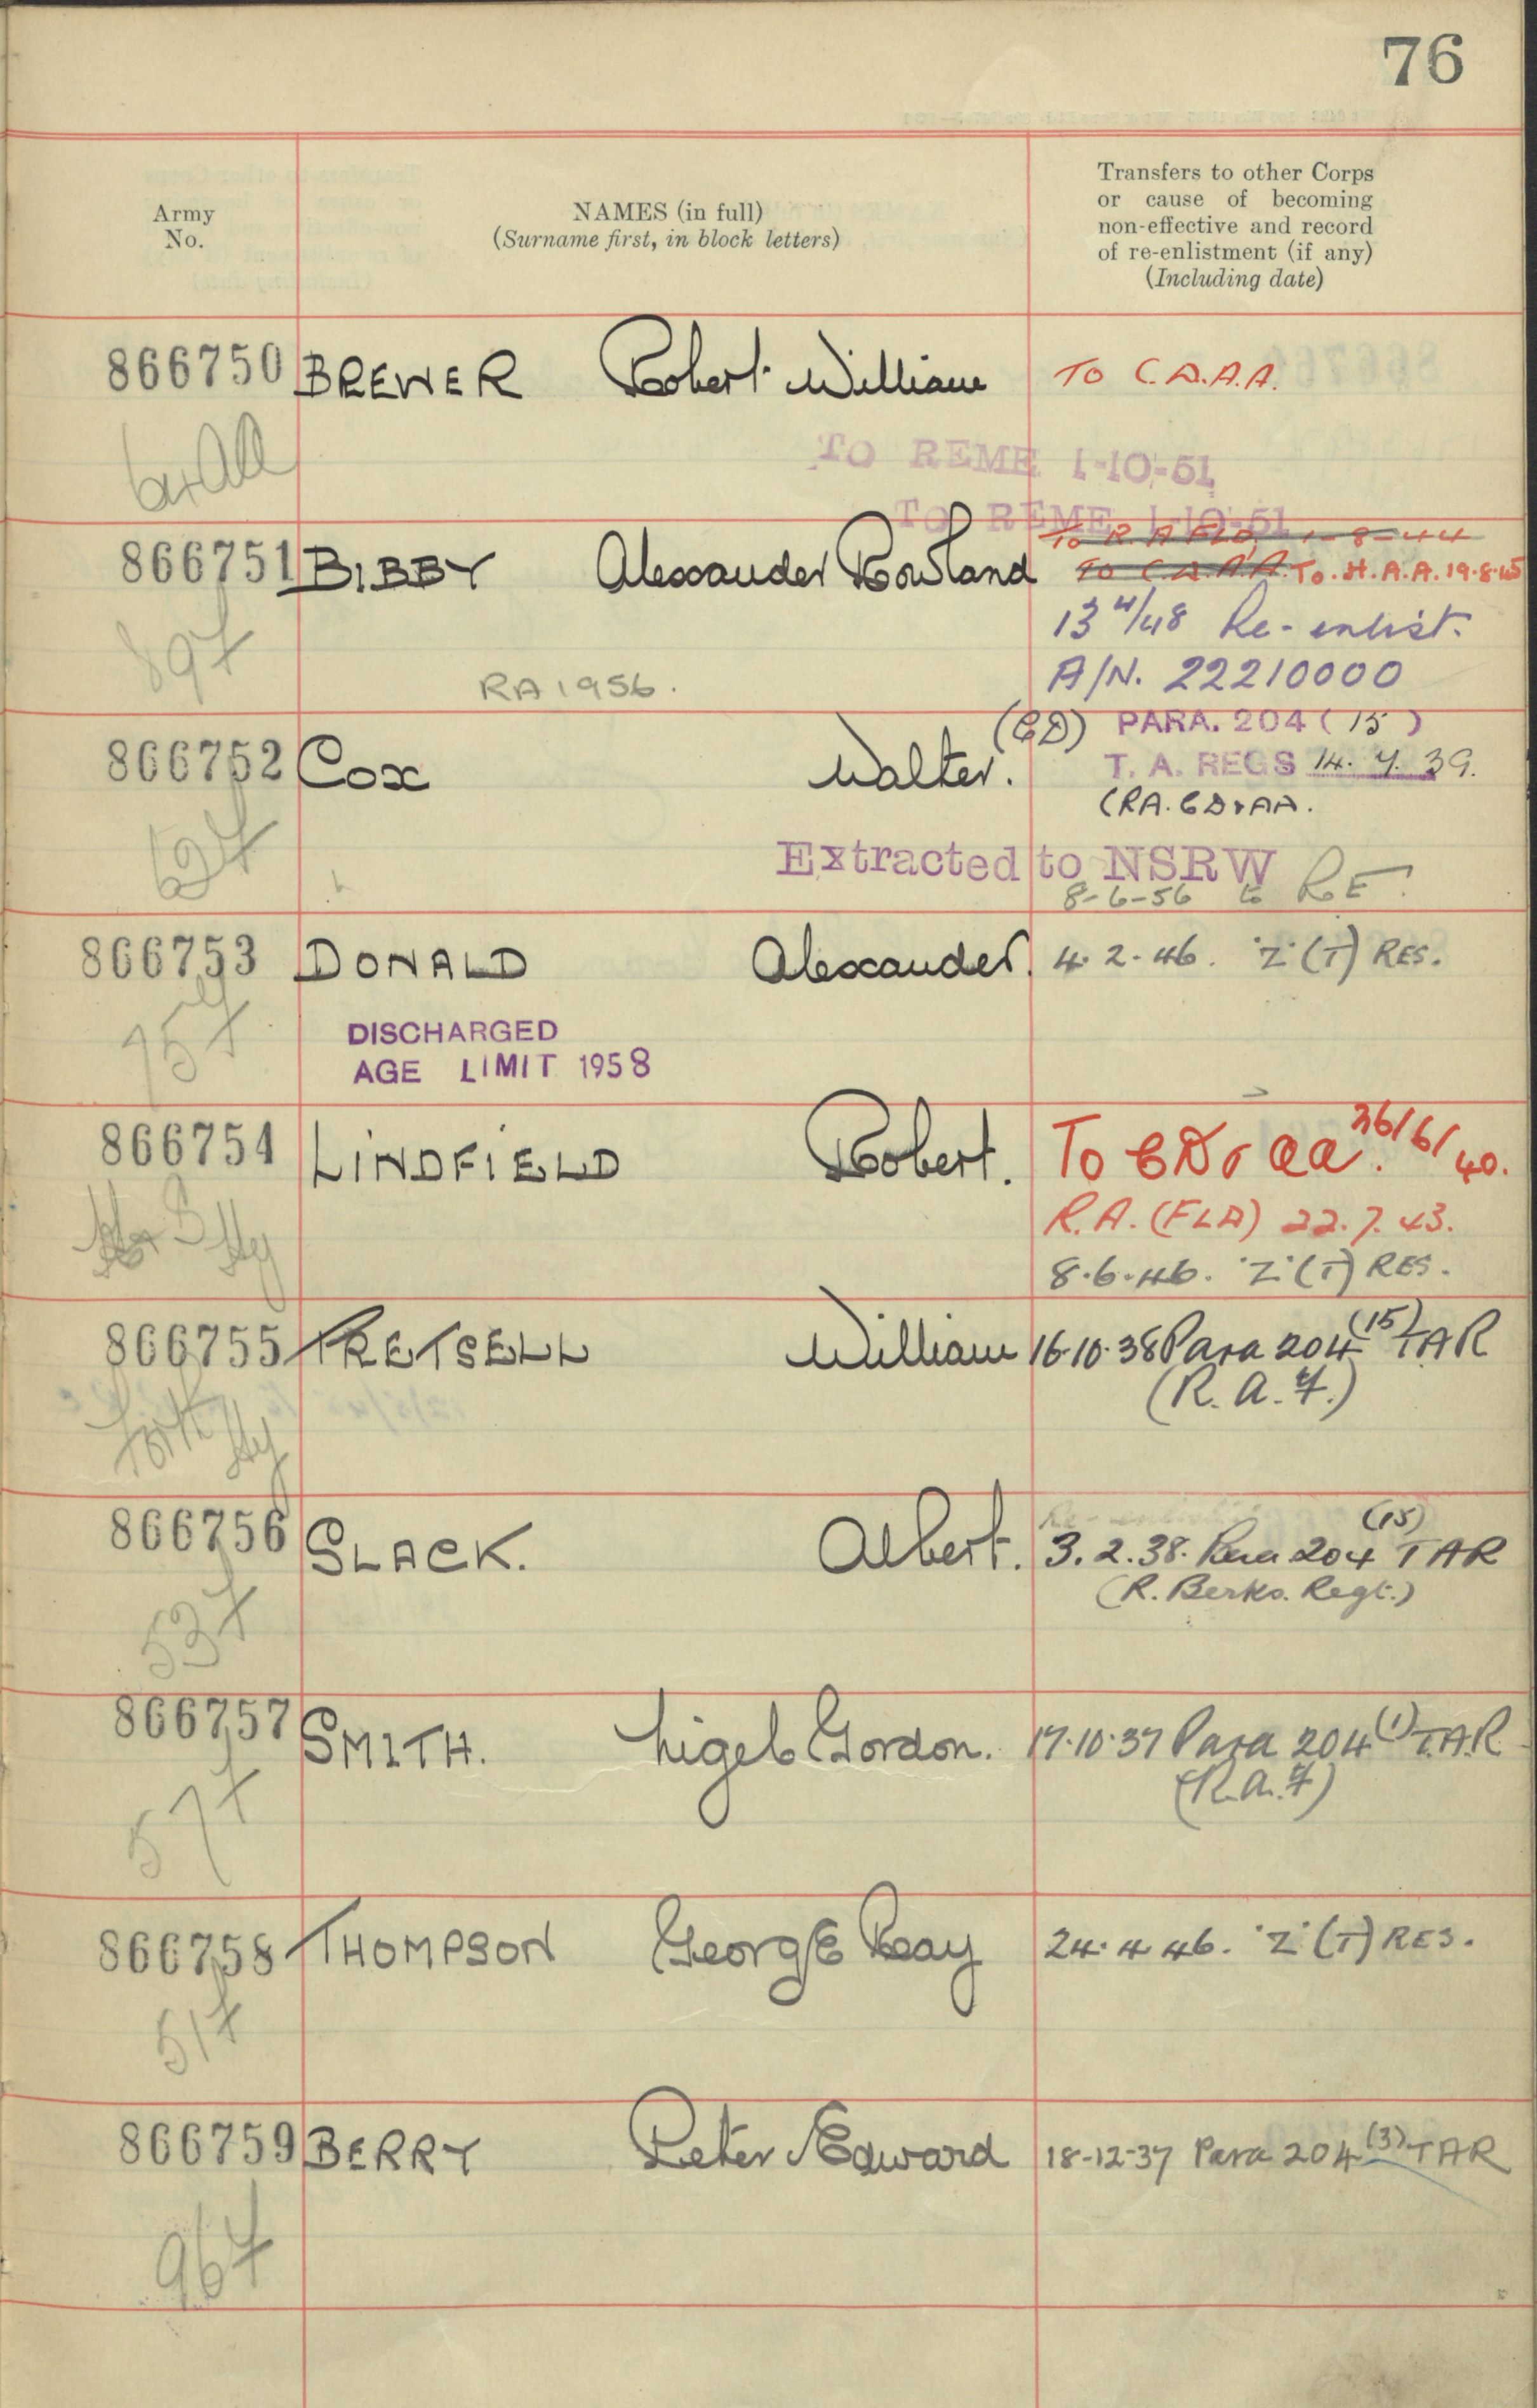 76
Army
No.
NAMES (in full)
(Surname first, in block letters)
Transfers to other Corps
or cause of becoming
non-effective and record
of re-enlistment (if any)
(Including date)
866750 BREWER Robert William TO C.D.A.A.
TO REME 1-10-51
TO REME 1-10-51
To R.A FLD, 1-8-44
866751 BIBBY Alexander Rowland To C.D.A.A. To. H.A.A. 19.8.45
13 4/48 Re-enlist.
897 RA 1956. A/N. 22210000
(CD) PARA. 204 (15)
866752 COX Walter. T. A. REGS 14. 7. 39.
(RA. CD & AA.
Extracted to NSRW
8-6-56 to R.E.
866753 DONALD Alexander. 4.2.46. 'Z'(T) RES.
DISCHARGED
AGE LIMIT 1958
866754 LINDFIELD Robert. To CD & AA. 26/6/40.
R.A. (FLD) 22.7.43.
8.6.46. 'Z'(T) RES.
866755 PRETSELL William 16.10.38 Para 204 (15) TAR
(R.A.F.)
866756 SLACK. Albert. 3.2.38. Para 204 (15) TAR
(R. Berks. Regt.)
866757 SMITH. Nigel Gordon. 17.10.37 Para 204 (1) T.A.R.
(R.A.F)
866758 THOMPSON George Reay 24.4.46. 'Z'(T) RES.
866759 BERRY Peter Edward 18-12-37 Para 204 (3) TAR